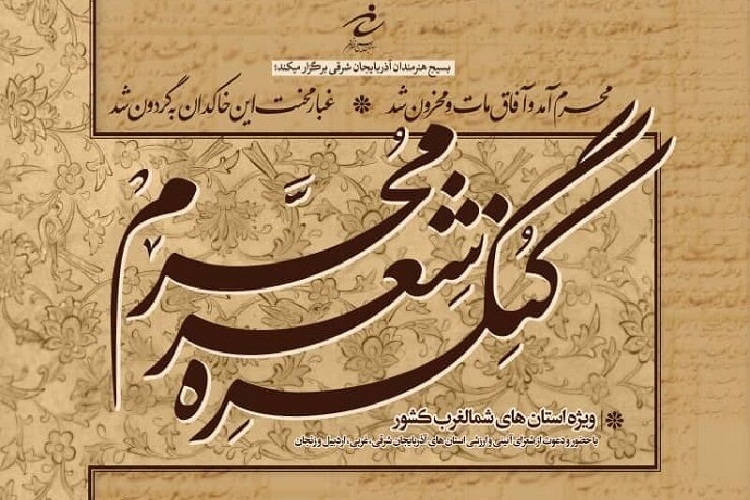 بسیج هنرمندان آذربایجان شرقی برگزار میکند:
محرم آمد و آفاق مات و محزون شد * غبار محنت این خاکدان به گردون شد
کنگره شعر محرم
* ویژه استان های شمالغرب کشور
با حضور و دعوت از شعرای آئینی و ارزشی استان های آذربایجان شرقی، غربی، اردبیل و زنجان